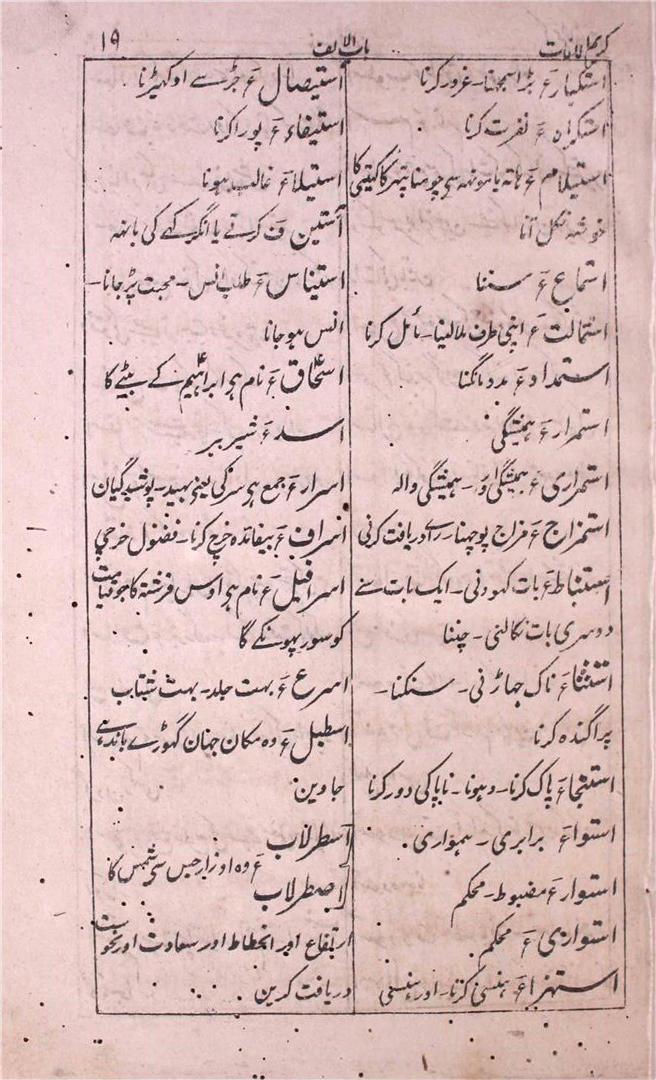 کریم اللغات
باب الالف
۱۹
استکبار ؏ بڑا سمجھنا۔ غرور کرنا
استکراہ ؏ نفرت کرنا
استیلام ؏ ہاتہ یا مونہہ سے چومنا پتہر کا کہیتی کا
خوشہ نکل آنا
استماع ؏ سننا
استمالت ؏ اپنی طرف ملا لینا۔ مائل کرنا
استمداد ؏ مدد مانگنا
استمرار ؏ ہمیشگی
استمراری ؏ ہمیشگی۔ ہمیشگی والہ
استمزاج ؏ مزاج پوچہنا۔ رای دریافت کرنی
استنباط ؏ بات کہودنی۔ ایک بات سے
دوسری بات نکالنی۔ چننا
استنثاء ؏ ناک جہاڑنی۔ سنکنا۔
پراگندہ کرنا
استنجاء ؏ پاک کرنا۔ دہونا۔ ناپاکی دور کرنا
استواء ؏ برابری۔ ہمواری۔
استوار ؏ مضبوط۔ محکم
استواری ؏ محکم
استہزاء ؏ ہنسی کرنا۔ اور ہنسی
استیصال ؏ جڑ سے اوکہیڑنا
استیفاء ؏ پورا کرنا
استیلاء ؏ غالب ہونا
آستین ف کرتے یا انگرکہے کی بانہہ
استیناس ؏ طلب انس۔ محبت پڑجانا۔
انس ہو جانا
اسحاق ؏ نام ہی ابراہیم کے بیٹے کا
اسد ؏ شیر ببر
اسرار ؏ جمع ہی سر کی یعنی بہید۔ پوشیدگیان
اسراف ؏ بیفائدہ خرچ کرنا۔ فضول خرچی
اسرافیل ؏ نام ہی اوس فرشتہ کا جو قیامت
کو سور پہونکے گا
اسرع ؏ بہت جلد۔ بہت شتاب
اسطبل ؏ وہ مکان جہان گہوڑے باندہے
جاوین
اسطرلاب
؏ وہ اوزار جس سی شمس کا
اصطرلاب
ارتفاع اور انحطاط اور سعادت اور نحوست
دریافت کرین